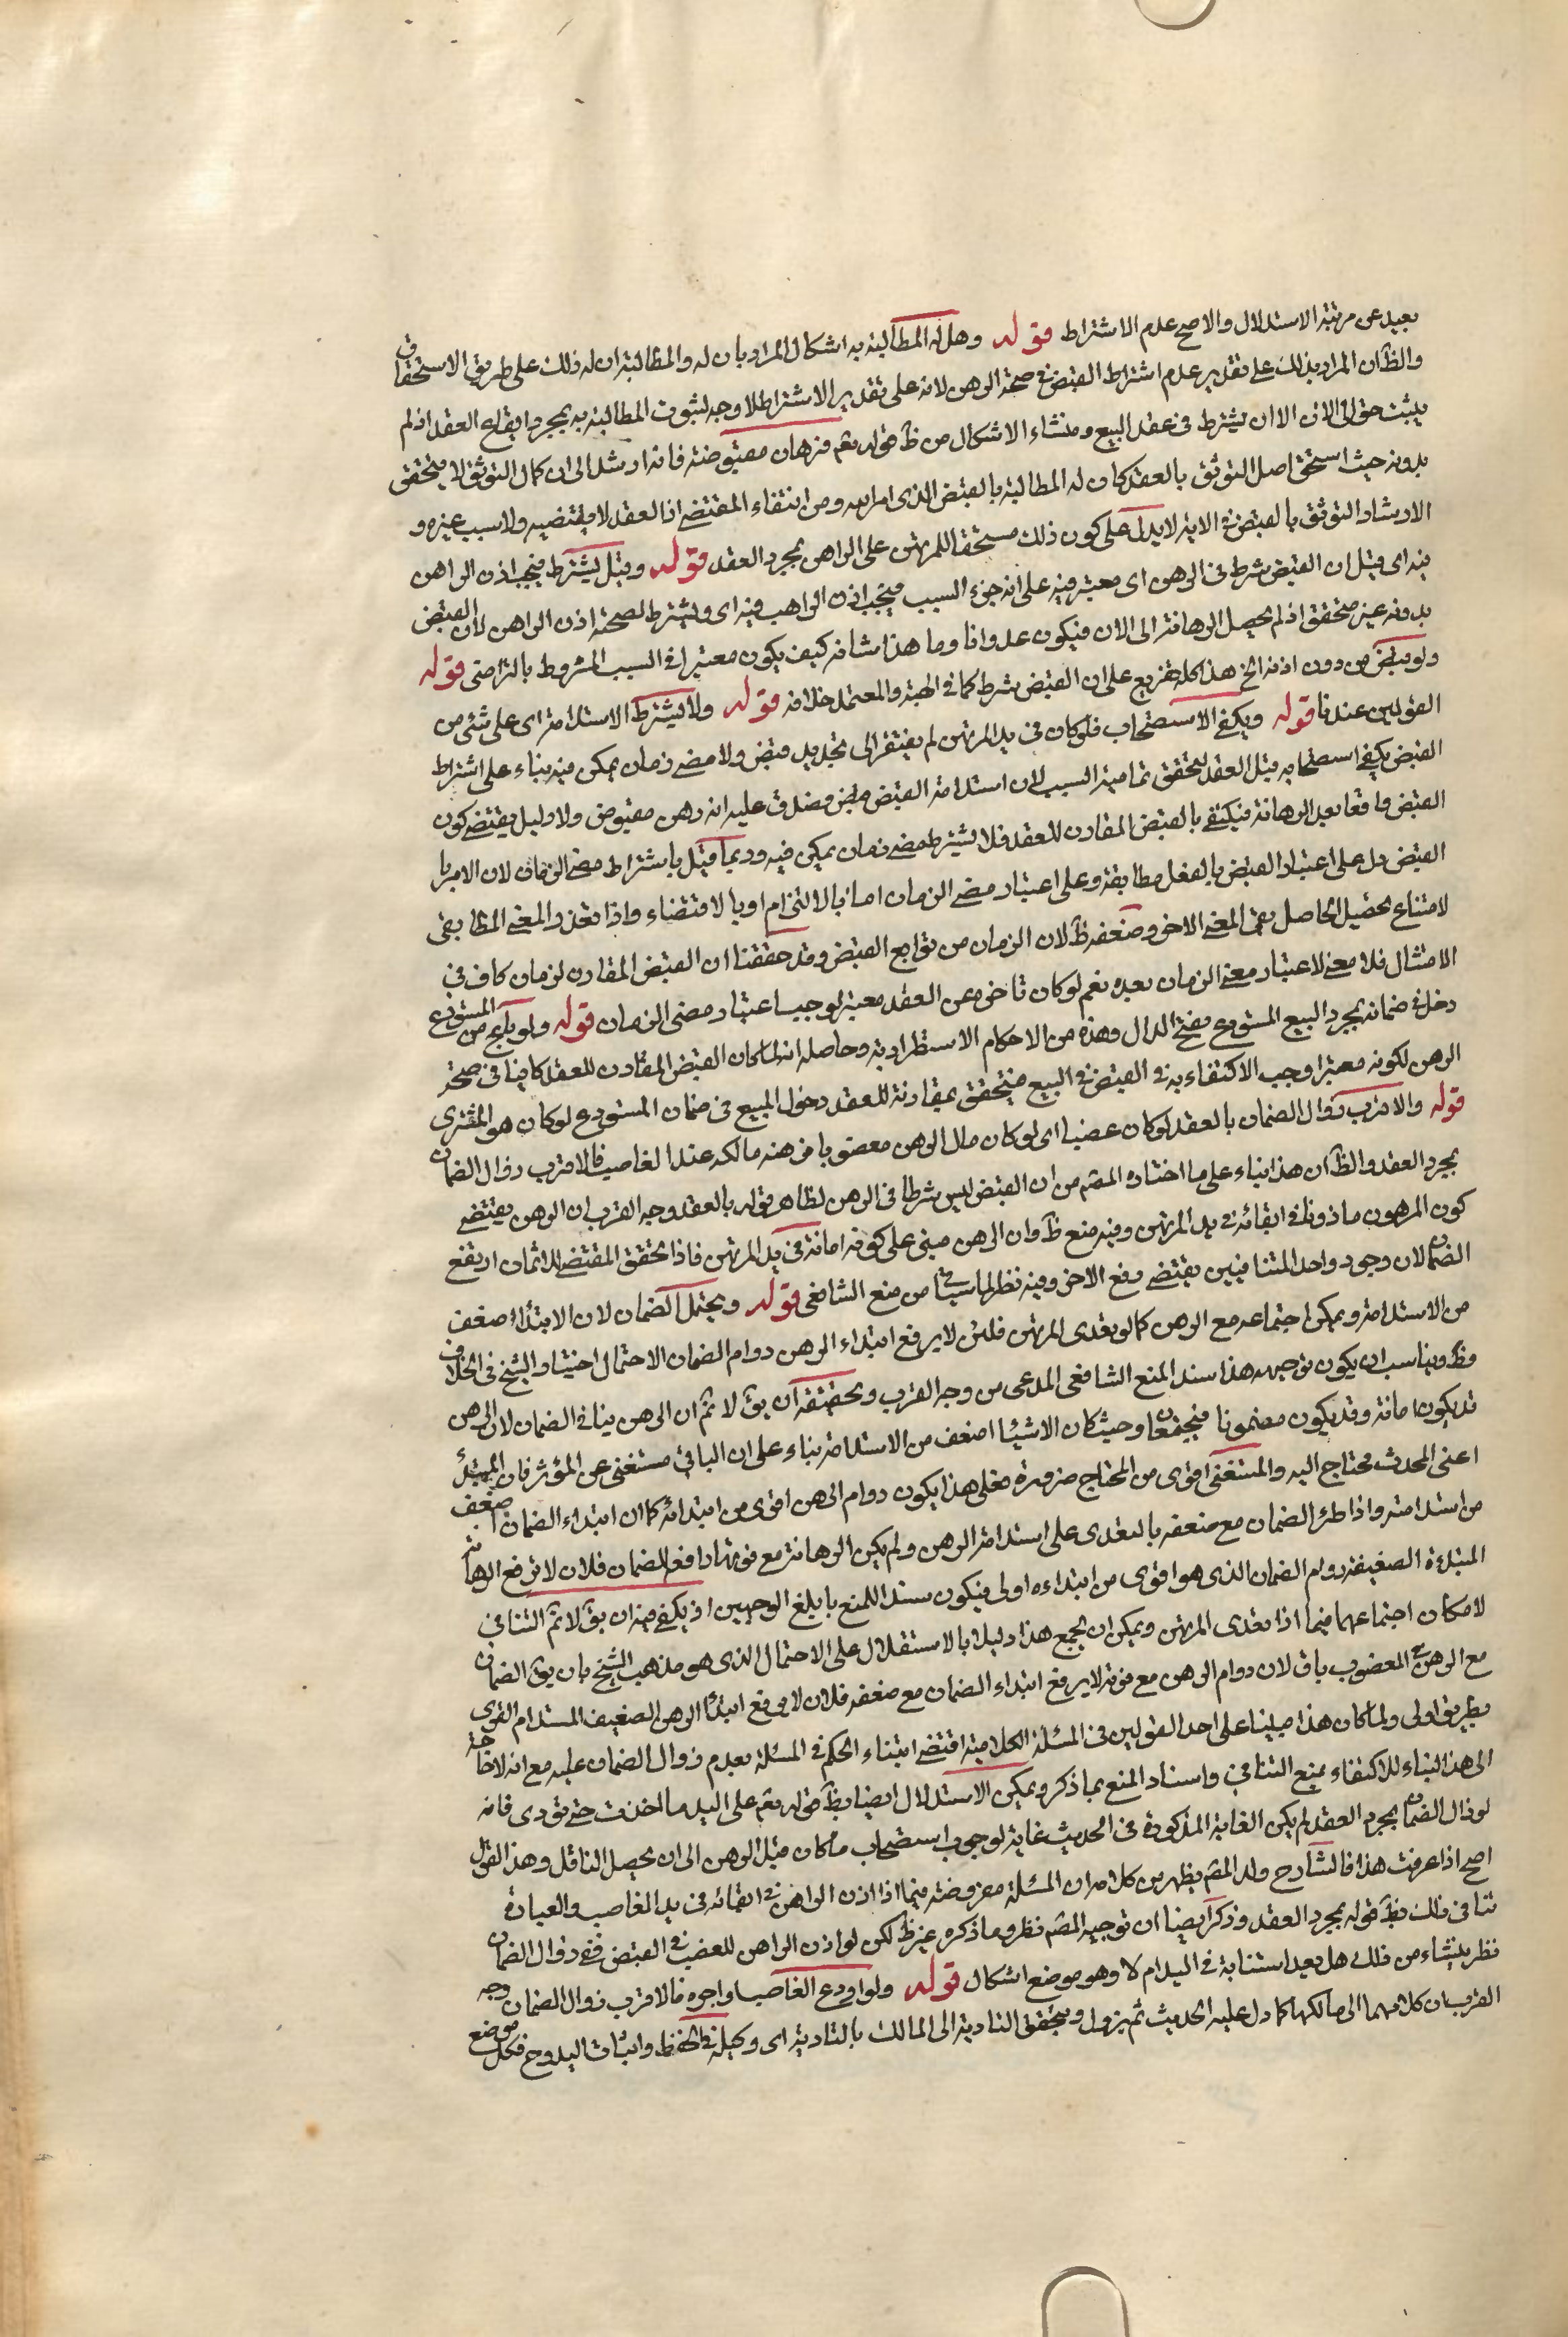 بعيد عن مرتبة الاستدلال والاصح عدم الاشتراط قوله وهل له المطالبة به اشكال المراد بان له والمطالبة ان له ذلك على طريق الاستحقاق
والظ ان المراد بذلك على تقدير عدم اشتراط القبض في صحة الرهن لانه على تقدير الاشتراط لا وجه لثبوت المطالبة به بمجرد ايقاع العقد اذ لم
يثبت حق الى الان الا ان يشترط في عقد البيع ومنشاء الاشكال من ظ قوله تعم فرهان مقبوضة فانه ارشد الى ان كمال التوثق لا يتحقق
بدونه حيث استحق اصل التوثق بالعقد كان له المطالبة بالقبض الذي امر به ومن انتفاء المقتضي اذ العقد لا يقتضيه ولا سبب غيره و
الارشاد التوثق بالقبض في الاية لا يدل على كون ذلك مستحقا للمرتهن على الراهن بمجرد العقد قوله وقيل يشترط فيجب اذن الراهن
فيه اى قيل ان القبض شرط في الرهن اى معتبر فيه على انه جزء السبب فيجب اذن الراهب فيه اى ويشترط لصحته اذن الراهن لان القبض
بدونه غير متحقق اذ لم يحصل الرهانة الى الان فيكون عدوانا وما هذا شانه كيف يكون معتبرا في السبب المشروط بالتراضى قوله
ولو قبض من دون اذنه الخ هذا كله تفريع على ان القبض شرط كما في الهبة والمعتمد خلافه قوله ولا يشترط الاستدامة اى على شئ من
القولين عندنا قوله ويكفي الاستصحاب فلو كان في يد المرتهن لم يفتقر الى تجديد قبض ولا مضي زمان يمكن فيه بناء على اشتراط
القبض يكفي استصحابه قبل العقد ليتحقق تمامية السبب لان استدامة القبض قبض فصدق عليه انه رهن مقبوض ولا دليل يقتضي كون
القبض واقعا بعد الرهانة فيكتفي بالقبض المقارن للعقد فلا يشترط مضي زمان يمكن فيه وربما قيل باشتراط مضي الزمان لان الامر با
لقبض دل على اعتبار القبض بالفعل مطابقة وعلى اعتبار مضي الزمان اما بالالتزام او بالاقتضاء واذا تعذر المعنى المطابقي
لامتناع تحصيل الحاصل بقي المعنى الاخر وضعفه ظ لان الزمان من توابع القبض وقد حققنا ان القبض المقارن لزمان كاف في
الامتثال فلا معنى لاعتبار مضي الزمان بعده نعم لو كان تاخره عن العقد معتبرا لوجب اعتبار مضى الزمان قوله ولو باع من المستودع
دخل في ضمانه بمجرد البيع المستودع بفتح الدال وهذه من الاحكام الاستطرادية وحاصله انه لما كان القبض المقارن للعقد كافيا في صحة
الرهن لكونه معتبرا وجب الاكتفاء به في القبض في البيع فيتحقق بمقارنة للعقد دخول المبيع في ضمان المستودع لو كان هو المشترى
قوله والاقرب زوال الضمان بالعقد لو كان غصبا اى لو كان مال الرهن مغصوبا فرهنه مالكه عند الغاصب فالاقرب زوال الضمان
بمجرد العقد والظ ان هذا بناء على ما اختاره المصم من ان القبض ليس شرطا في الرهن لظاهر قوله بالعقد وجه القرب ان الرهن يقتضي
كون المرهون ماذونا في ابقائه في يد المرتهن وفيه منع ظ وان الرهن مبنى على كونه امانة في يد المرتهن فاذا تحقق المقتضي للائتمان ارتفع
الضمان لان وجود واحد المتنافيين يقتضي رفع الاخر وفيه نظر لما سيأتى من منع الشافعى قوله ويحتمل الضمان لان الابتداء اضعف
من الاستدامة ويمكن اجتماعه مع الرهن كما لو تعدى المرتهن فلئن لا يرفع ابتداء الرهن دوام الضمان الاحتمال اختيار الشيخ في الخلاف
وظ ويناسب ان يكون توجيهه هذا سند المنع الشافعى المدعى من وجه القرب وتحقيقه ان يق لا ثم ان الرهن ينافي الضمان لان الرهن
قد يكون امانة وقد يكون مضمونا فيجتمعان وحيث كان الاشياء اضعف من الاستدامة بناء على ان الباقي مستغنى عن المؤثر فان المبتدئ
اعنى المحدث محتاج اليه والمستغنى اقوى من المحتاج ضرورة فعلى هذا يكون دوام الرهن اقوى من ابتدائه كما ان ابتداء الضمان اضعف
من استدامته واذا طرئ الضمان مع ضعفه بالتعدى على استدامة الرهن ولم يكن الرهانة مع قوتها دافعه للضمان فلان لا ترفع الرهانة
المبتدئة الضعيفة دوام الضمان الذى هو اقوى من ابتداءه اولى فيكون سند اللمنع بابلغ الوجهين اذ يكفي فيه ان يق لا ثم التنافي
لامكان اجتماعهما فيما اذا تعدى المرتهن ويمكن ان يجمع هذا دليلا بالاستقلال على الاحتمال الذى هو مذهب الشيخ بان يق الضمان
مع الرهن في المغصوب باق لان دوام الرهن مع قوته لا يرفع ابتداء الضمان مع ضعفه فلان لا يرفع ابتداء الرهن الضعيف المستدام القوى
بطريق اولى ولما كان هذا مبنيا على احد القولين في المسئلة الكلامية اقتضى ابتناء الحكم في المسئلة بعدم زوال الضمان عليه مع انه لا حاجة
الى هذا البناء للاكتفاء بمنع التنافي واسناد المنع بما ذكر ويمكن الاستدلال ايضا بظ قوله تعم على اليد ما اخذت حتى تؤدى فانه
لو زال الضمان بمجرد العقد لم يكن الغاية المذكورة في الحديث غاية لوجوب استصحاب ما كان قبل الرهن الى ان يحصل الناقل وهذا القول
اصح اذا عرفت هذا فالشارح ولد المصم يظهر من كلامه ان المسئلة مفروضة فيما اذا اذن الراهن في ابقائه في يد الغاصب والعبارة
تنافى ذلك بظ قوله بمجرد العقد وذكر ايضا ان توجيه المصم نظر وما ذكره غير ظ لكن لو اذن الراهن للغصب في القبض ففي زوال الضمان
نظر ينشاء من ذلك هل يعد استنابة في اليد ام لا وهو موضع اشكال قوله ولو اودع الغاصب او اجره فالاقرب زوال الضمان وجه
القرب ان كلا منهما الى مالكها كما دل عليه الحديث ثم يزول ويتحقق التادية الى المالك بالتادية اى وكيله في الحفظ واثبات اليد وح فكل موضع